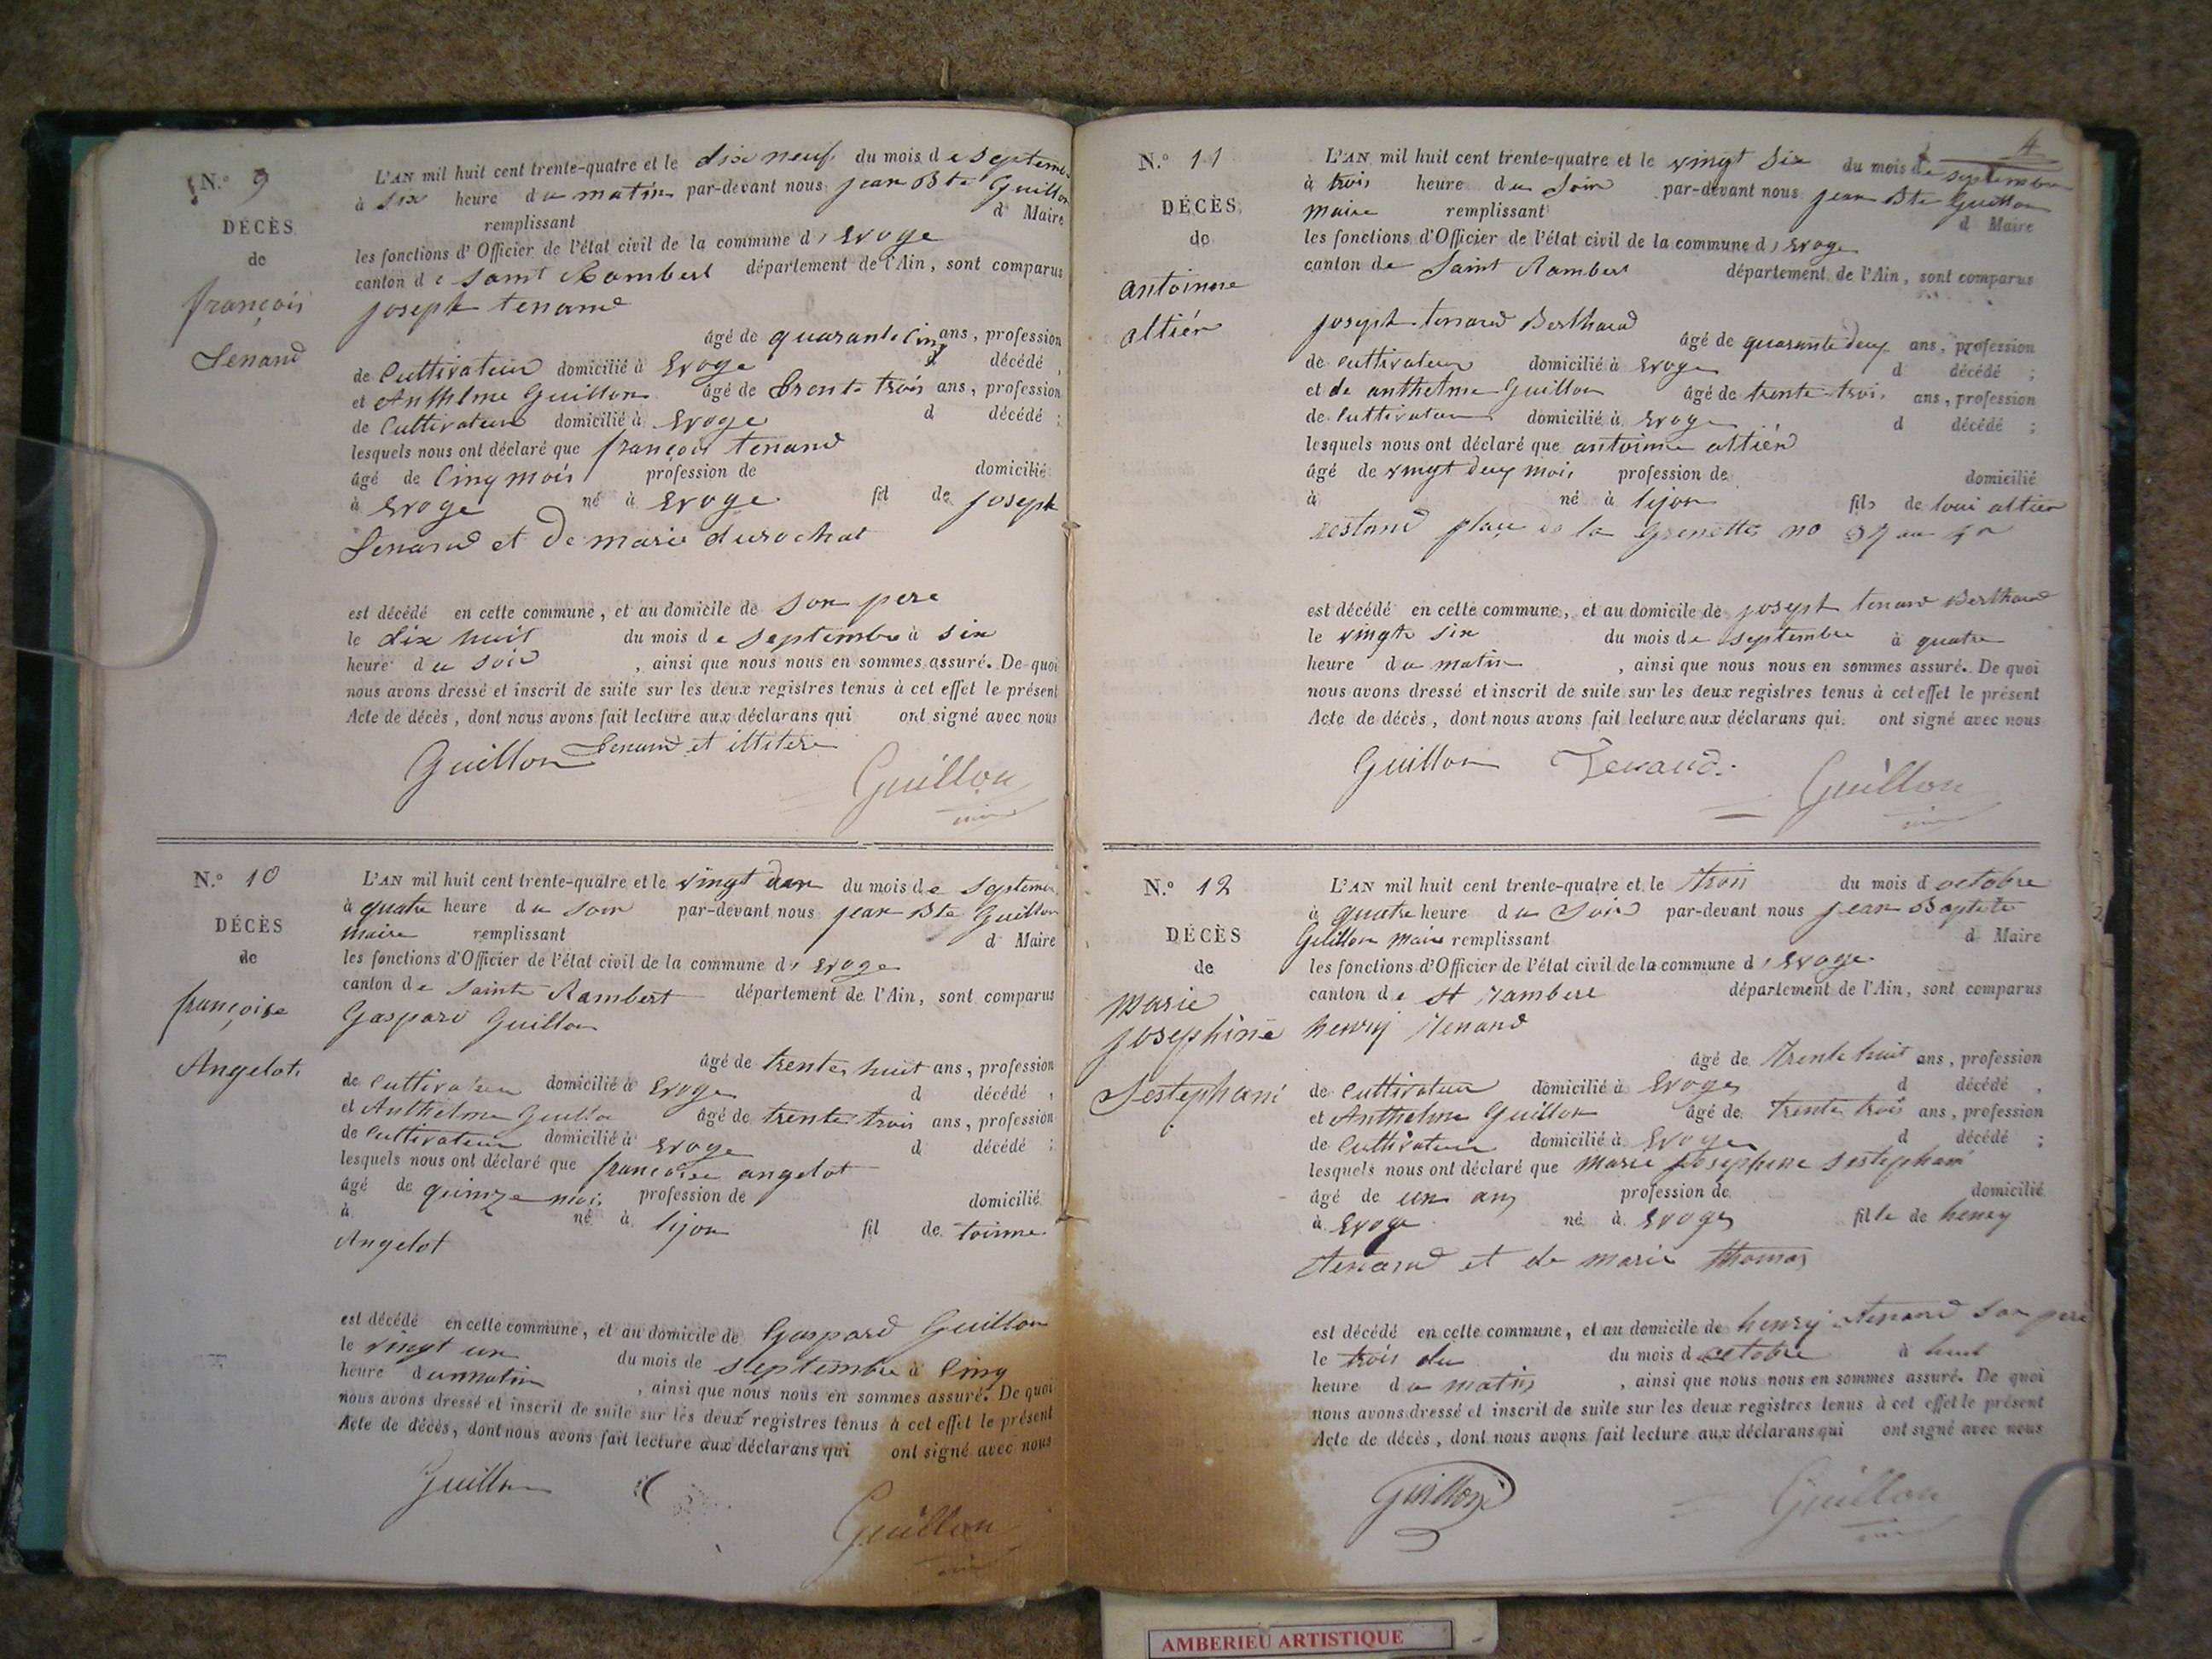 N.° 9
DÉCÈS
de
françois
Tenand
L'AN mil huit cent trente-quatre et le dix neuf du mois de septembre
à six heure du matin par-devant nous jean Bte Guillon
remplissant d Maire
les fonctions d'Officier de l'état civil de la commune d'Evoge
canton de saint Rambert département de l'Ain, sont comparus
joseph tenand
âgé de quarante cinq ans, profession
de Cultivateur domicilié à Evoge d décédé,
et Anthelme Guillon âgé de trente trois ans, profession
de Cultivateur domicilié à Evoge d décédé;
lesquels nous ont déclaré que françois tenand
âgé de Cinq mois profession de domicilié
à Evoge né à Evoge fil de joseph
Tenand et de marie durochat
est décédé en cette commune, et au domicile de son pere
le dix huit du mois de septembre à six
heure du soir, ainsi que nous nous en sommes assuré. De quoi
nous avons dressé et inscrit de suite sur les deux registres tenus à cet effet le présent
Acte de décès, dont nous avons fait lecture aux déclarans qui ont signé avec nous
Guillon Tenand et illitere
Guillon
N.° 10
DÉCÈS
de
françoise
Angelot
L'AN mil huit cent trente-quatre et le vingt du mois de septembre
à quatre heure du soir par-devant nous jean Bte Guillon
maire remplissant d Maire
les fonctions d'Officier de l'état civil de la commune d'Evoge
canton de sainte Rambert département de l'Ain, sont comparus
Gaspard Guillon
âgé de trente huit ans, profession
de Cultivateur domicilié à Evoge d décédé,
et Anthelme Guillon âgé de trente trois ans, profession
de Cultivateur domicilié à Evoge d décédé;
lesquels nous ont déclaré que françoise angelot
âgé de quinze mois profession de domicilié
à né à lijon fil de toinne
Angelot
est décédé en cette commune, et au domicile de Gaspard Guillon
le vingt un du mois de septembre à Cinq
heure du matin, ainsi que nous nous en sommes assuré. De quoi
nous avons dressé et inscrit de suite sur les deux registres tenus à cet effet le présent
Acte de décès, dont nous avons fait lecture aux déclarans qui ont signé avec nous
Guillon
Guillon
4
N.° 11
DÉCÈS
de
antoinne
altiér
L'AN mil huit cent trente-quatre et le vingt six du mois de septembre
à trois heure du soir par-devant nous jean Bte Guillon
maire remplissant d Maire
les fonctions d'Officier de l'état civil de la commune d'Evoge
canton de Saint Rambert département de l'Ain, sont comparus
joseph tenand Berthaud
âgé de quarante deux ans, profession
de cultivateur domicilié à Evoge d décédé;
et de anthelme Guillon âgé de trente trois ans, profession
de Cultivateur domicilié à Evoge d décédé;
lesquels nous ont déclaré que antoinne altiér
âgé de vingt deux mois profession de domicilié
à né à lijon fils de loui altier
restand place de la Grenette no 37 au
est décédé en cette commune, et au domicile de joseph tenand Berthaud
le vingt six du mois de septembre à quatre
heure du matin, ainsi que nous nous en sommes assuré. De quoi
nous avons dressé et inscrit de suite sur les deux registres tenus à cet effet le présent
Acte de décès, dont nous avons fait lecture aux déclarans qui ont signé avec nous
Guillon Tenand
Guillon
N.° 12
DÉCÈS
de
marie
josephine
Sestephani
L'AN mil huit cent trente-quatre et le trois du mois d'octobre
à quatre heure du soir par-devant nous jean Baptiste
Guillon maire remplissant d Maire
les fonctions d'Officier de l'état civil de la commune d'Evoge
canton de st rambert département de l'Ain, sont comparus
henry tenand
âgé de trente huit ans, profession
de Cultivateur domicilié à Evoges d décédé,
et Anthelme Guillon âgé de trente trois ans, profession
de Cultivateur domicilié à Evoges d décédé;
lesquels nous ont déclaré que marie josephine sestephani
âgé de un ans profession de domicilié
à Evoge né à Evoges fille de henry
tenand et de marie thomas
est décédé en cette commune, et au domicile de henry tenand son pere
le trois du du mois d octobre à huit
heure du matin, ainsi que nous nous en sommes assuré. De quoi
nous avons dressé et inscrit de suite sur les deux registres tenus à cet effet le présent
Acte de décès, dont nous avons fait lecture aux déclarans qui ont signé avec nous
Guillon
Guillon
AMBERIEU ARTISTIQUE